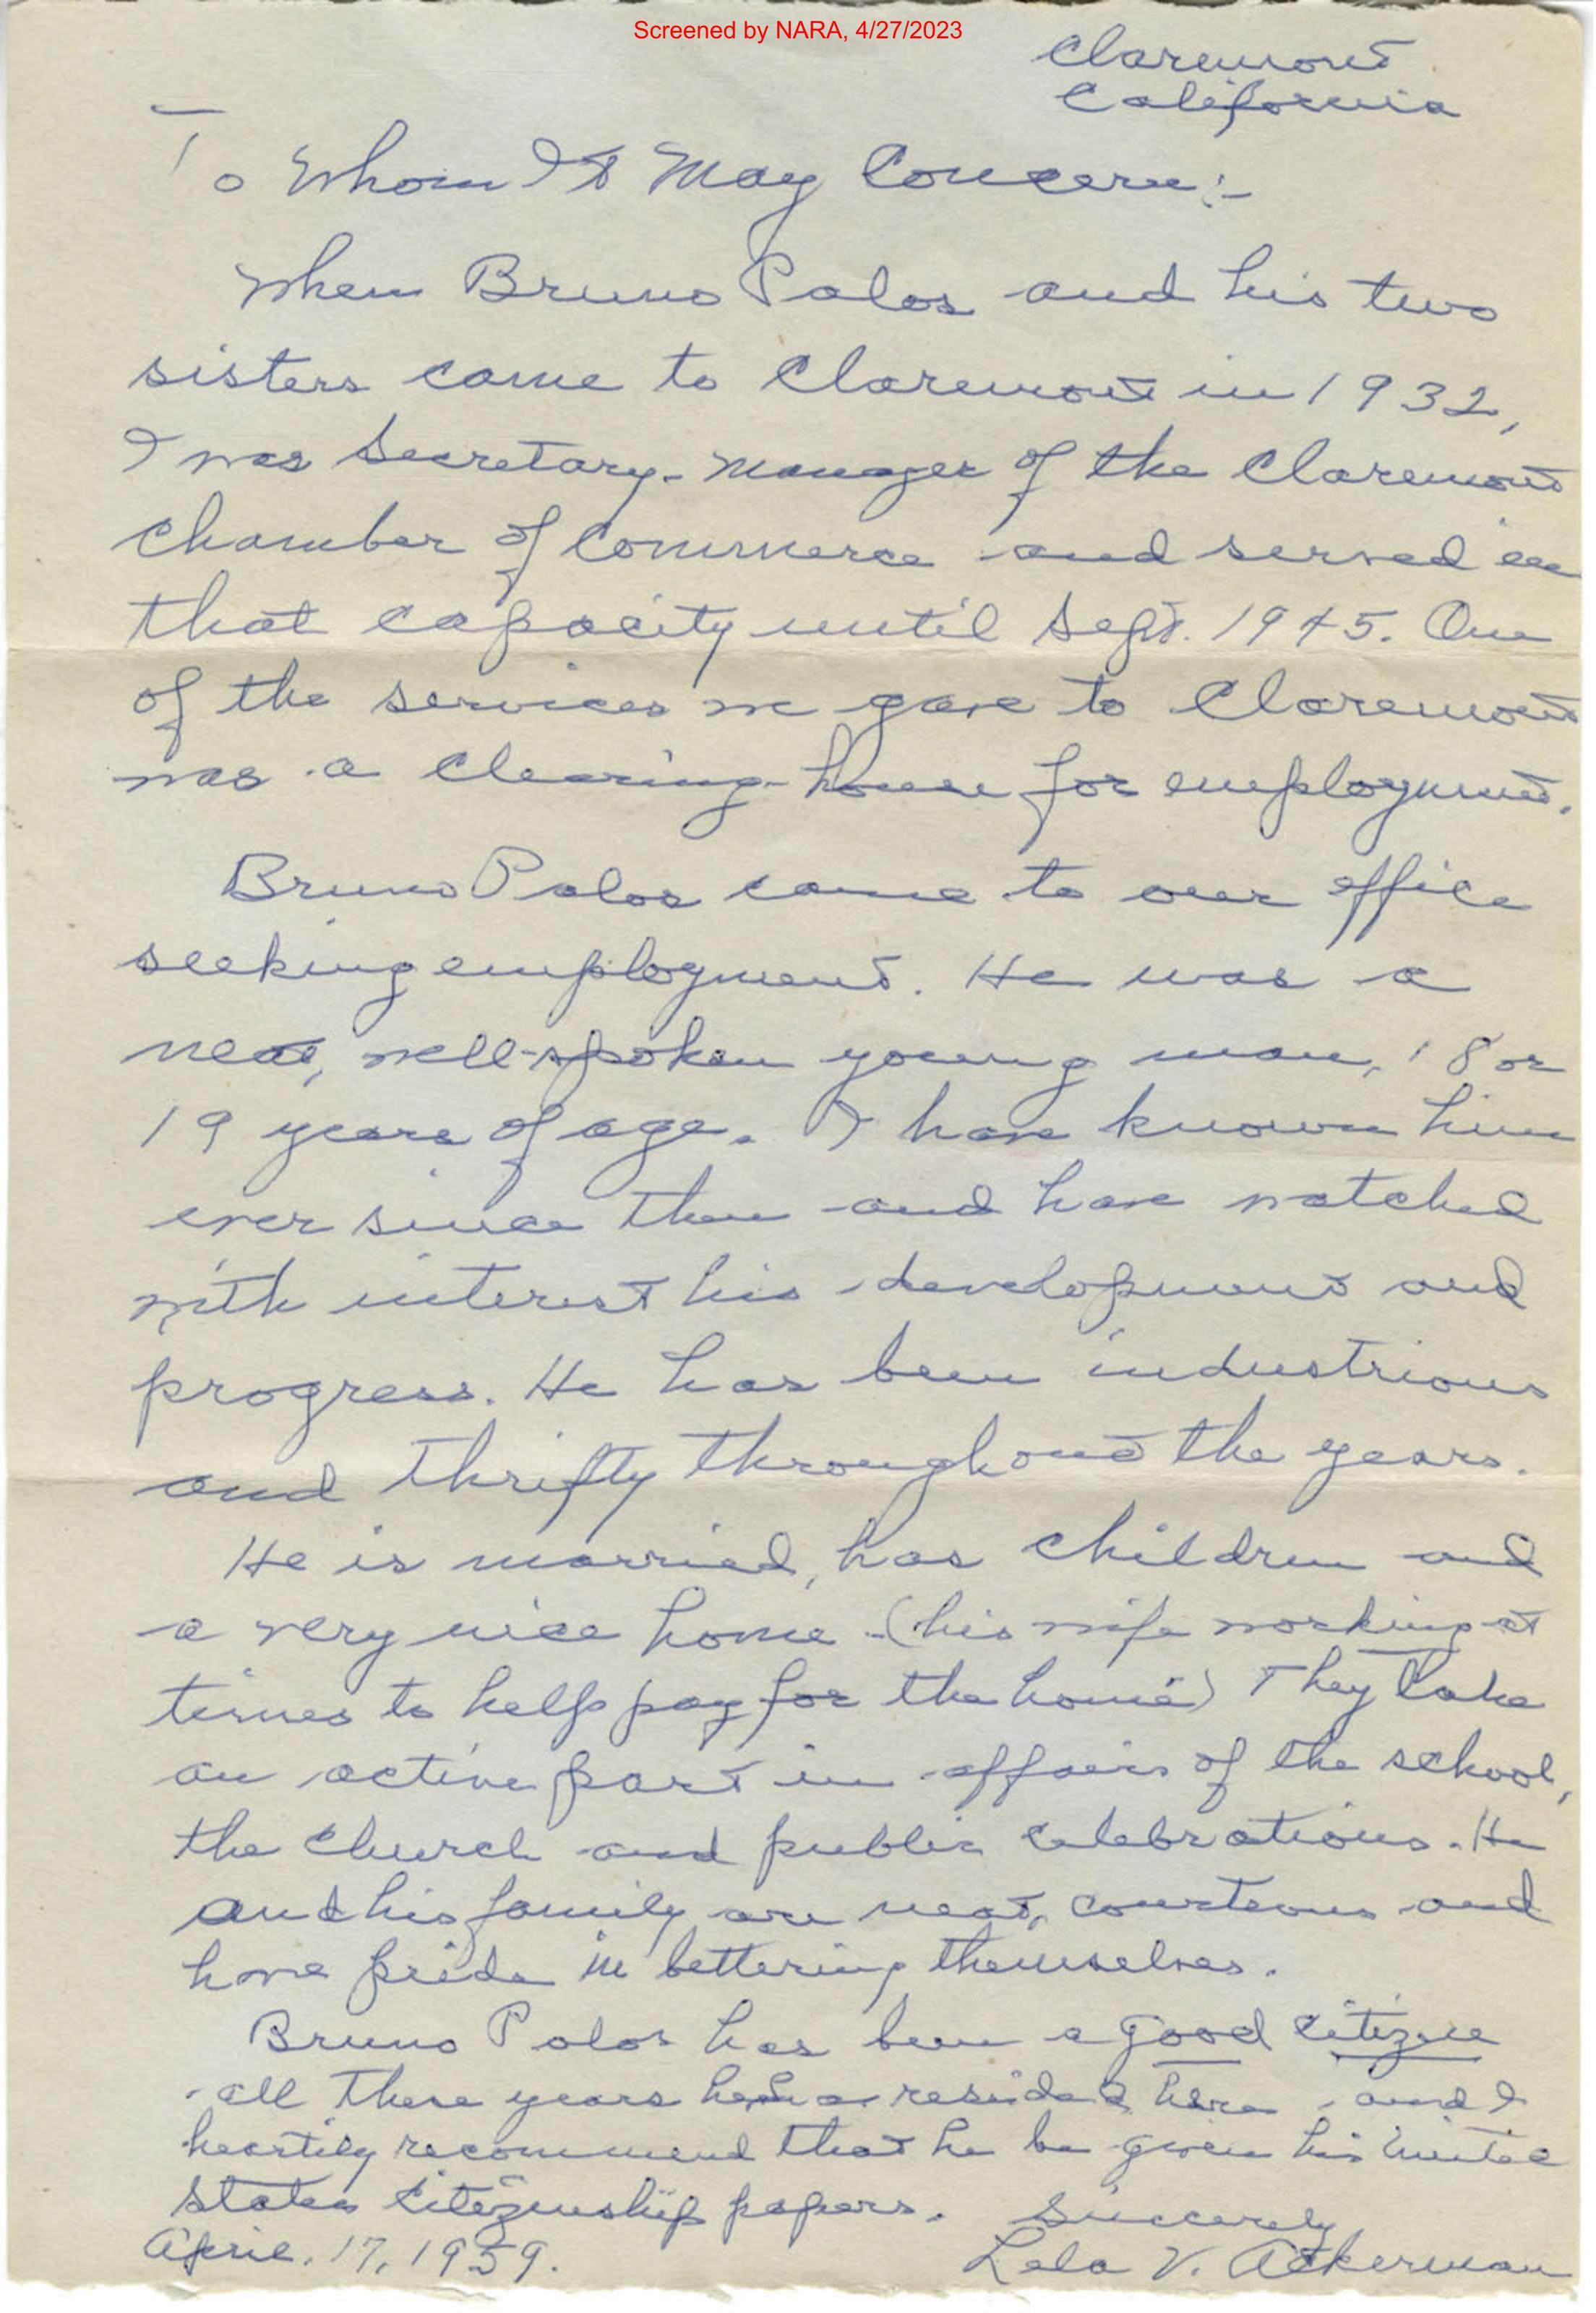 Screened by NARA, 4/27/2023
Claremont
California
To Whom It May Concern:-
When Bruno Palos and his two
sisters came to Claremont in 1932,
I was Secretary-Manager of the Claremont
Chamber of Commerce and served in
that capacity until Sept. 1945. One
of the services we gave to Claremont
was a clearing-house for employment.
Bruno Palos came to our office
seeking employment. He was a
neat, well-spoken young man, 18 or
19 years of age. I have known him
ever since then and have watched
with interest his development and
progress. He has been industrious
and thrifty throughout the years.
He is married, has children and
a very nice home - (his wife working at
times to help pay for the home) They take
an active part in affairs of the school,
the church and public celebrations. He
and his family are neat, courteous and
have pride in bettering themselves.
Bruno Palos has been a good citizen
all these years he has resided here and I
heartily recommend that he be given his United
States Citizenship papers. Sincerely
April. 17, 1959. Lela V. Ackerman